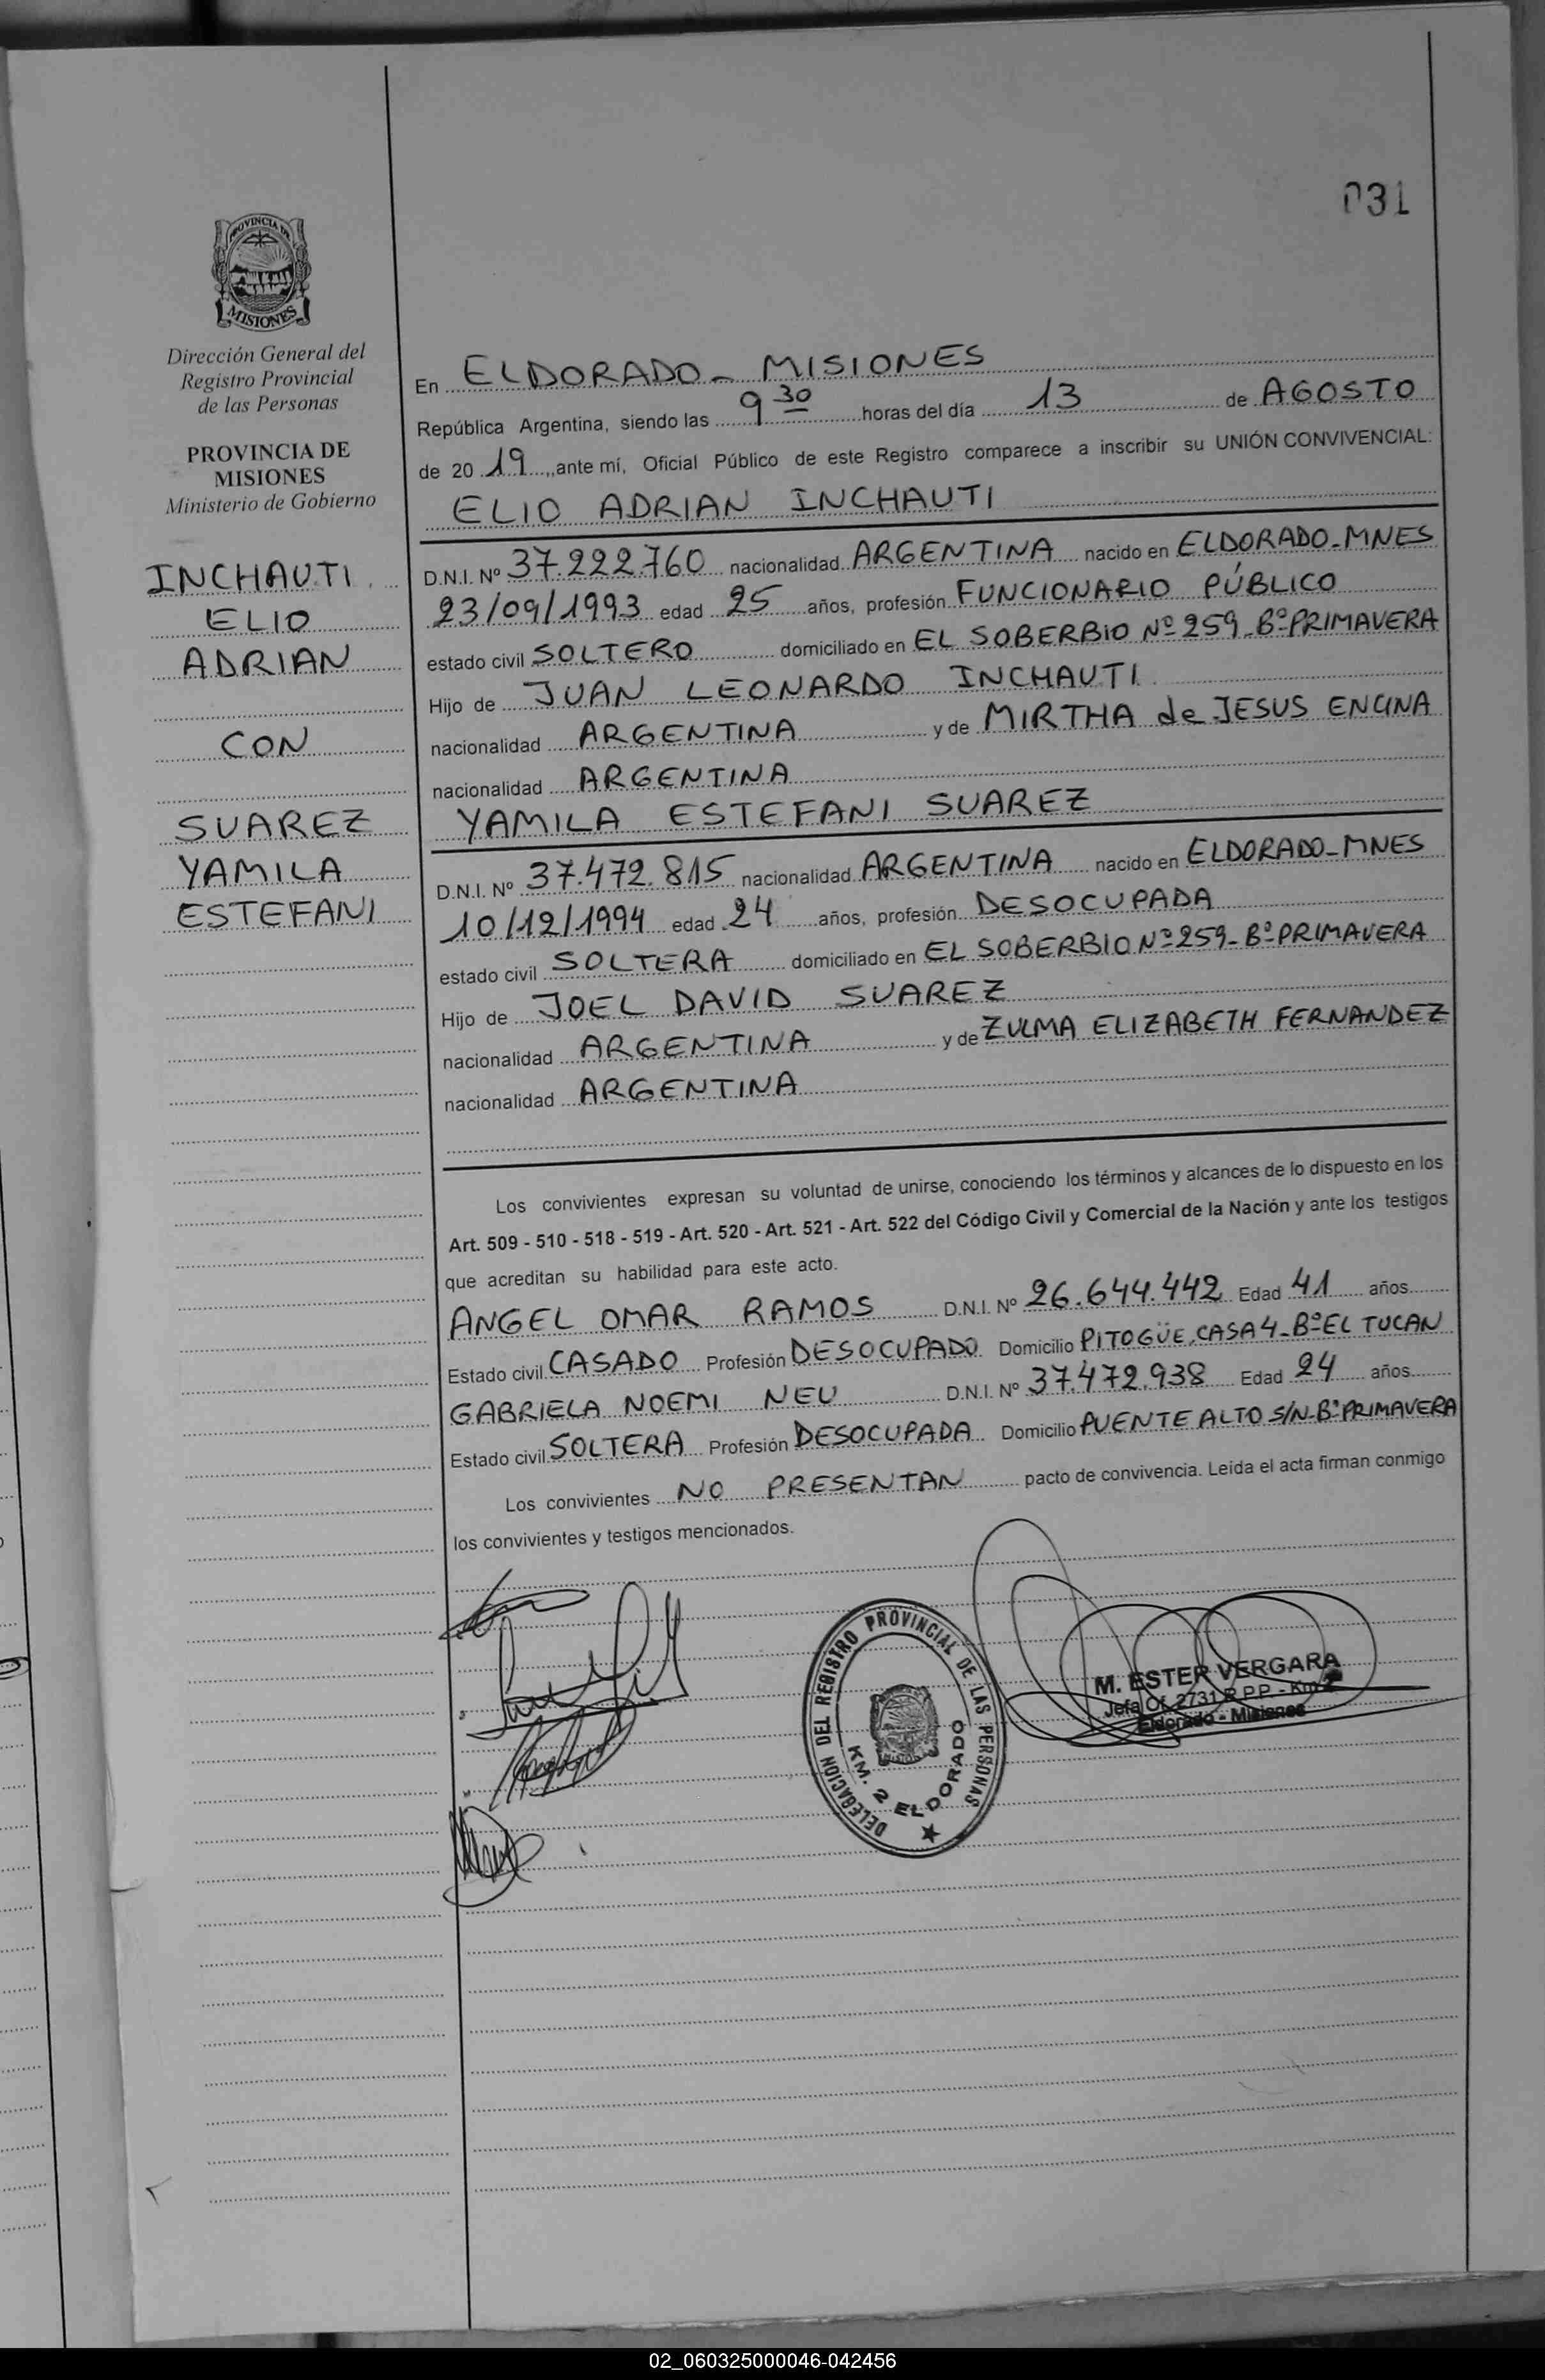 031
PROVINCIA DE
MISIONES
Dirección General del
Registro Provincial
de las Personas
PROVINCIA DE
MISIONES
Ministerio de Gobierno
INCHAUTI
ELIO
ADRIAN
CON
SUAREZ
YAMILA
ESTEFANI
En ELDORADO - MISIONES
República Argentina, siendo las 9 30 horas del día 13 de AGOSTO
de 20 19, ante mí, Oficial Público de este Registro comparece a inscribir su UNIÓN CONVIVENCIAL:
ELIO ADRIAN INCHAUTI
D.N.I. Nº 37.222.760 nacionalidad ARGENTINA nacido en ELDORADO-MNES
23/09/1993 edad 25 años, profesión FUNCIONARIO PÚBLICO
estado civil SOLTERO domiciliado en EL SOBERBIO Nº 259-Bº PRIMAVERA
Hijo de JUAN LEONARDO INCHAUTI
nacionalidad ARGENTINA y de MIRTHA de JESUS ENCINA
nacionalidad ARGENTINA
YAMILA ESTEFANI SUAREZ
D.N.I. Nº 37.472.815 nacionalidad ARGENTINA nacido en ELDORADO-MNES
10/12/1994 edad 24 años, profesión DESOCUPADA
estado civil SOLTERA domiciliado en EL SOBERBIO Nº 259-Bº PRIMAVERA
Hijo de JOEL DAVID SUAREZ
nacionalidad ARGENTINA y de ZULMA ELIZABETH FERNANDEZ
nacionalidad ARGENTINA
Los convivientes expresan su voluntad de unirse, conociendo los términos y alcances de lo dispuesto en los
Art. 509 - 510 - 518 - 519 - Art. 520 - Art. 521 - Art. 522 del Código Civil y Comercial de la Nación y ante los testigos
que acreditan su habilidad para este acto.
ANGEL OMAR RAMOS D.N.I. Nº 26.644.442 Edad 41 años
Estado civil CASADO Profesión DESOCUPADO Domicilio PITOGÜE, CASA 4-Bº EL TUCAN
GABRIELA NOEMI NEU D.N.I. Nº 37.472.938 Edad 24 años
Estado civil SOLTERA Profesión DESOCUPADA Domicilio PUENTE ALTO S/N-Bº PRIMAVERA
Los convivientes NO PRESENTAN pacto de convivencia. Leída el acta firman conmigo
los convivientes y testigos mencionados.
DELEGACION DEL REGISTRO PROVINCIAL DE LAS PERSONAS
KM. 2 ELDORADO
M. ESTER VERGARA
Jefa Of. 2731 R.P.P. - Km 2
Eldorado - Misiones
02_060325000046-042456